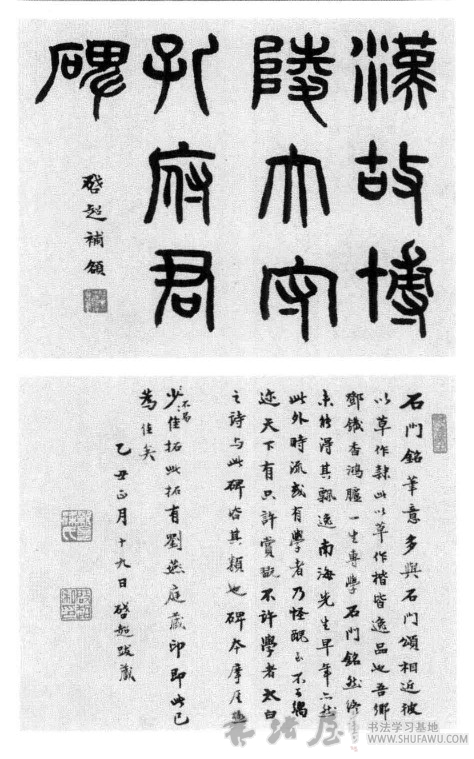 漢故博
陵太守
孔府君
碑
啓超補額
石門銘筆意多與石門頌相近彼
以草作隸此以草作楷皆逸品也吾鄉
鄧鐵香鴻臚一生專學石門銘然終
未能得其飄逸南海先生早年亦然
此外時流或有學者乃怪醜至不可
迩天下有只許賞翫不許學者太白
之詩与此碑皆其類也碑本摩厓
少不易佳拓此拓有劉燕庭藏印即此已
為佳矣
乙丑正月十九日啓超跋藏
书法学习基地
WWW.SHUFAWU.COM